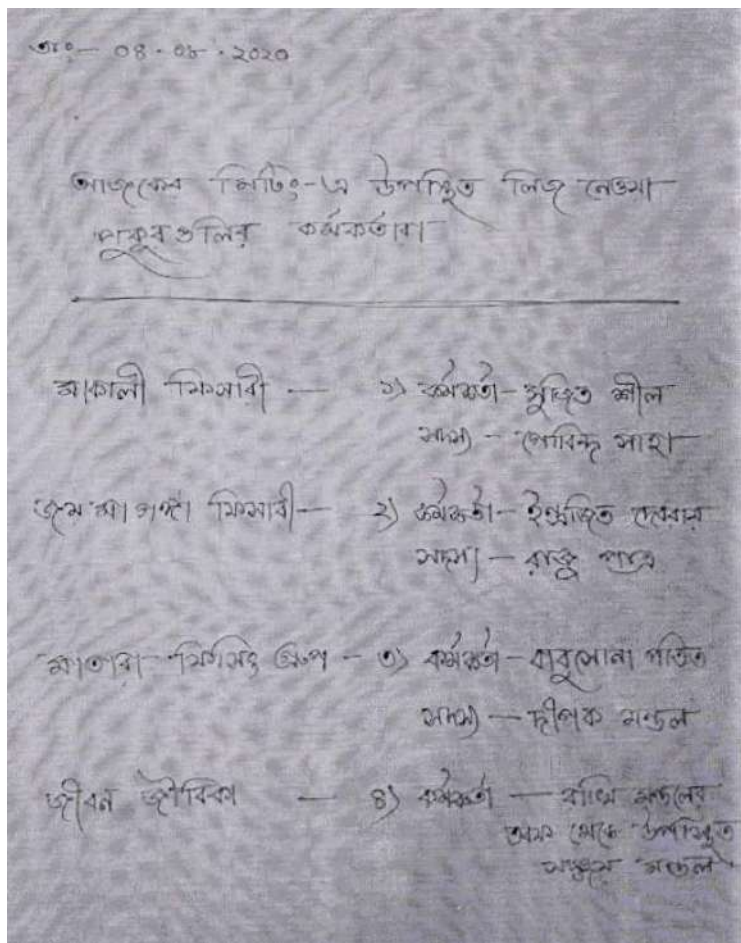 তাং— 08.05.2020
আজকের মিটিং-এ উপস্থিত লিজ নেওয়া
পুকুরগুলির কর্মকর্তারা
মাকালী ফিসারী — ১) কর্মকর্তা – সুজিত শীল
সদস্য – গোবিন্দ সাহা
জয় মা গঙ্গা ফিসারী — ২) কর্মকর্তা – ইন্দ্রজিত
সদস্য – রাজু পাত্র
মাতারা ফিসিং গ্রুপ – ৩) কর্মকর্তা – বাবুসোনা পন্ডিত
সদস্য — দীপক মন্ডল
জীবন জীবিকা — ৪) কর্মকর্তা — মন্ডলের
থেকে উপস্থিত
মন্ডল